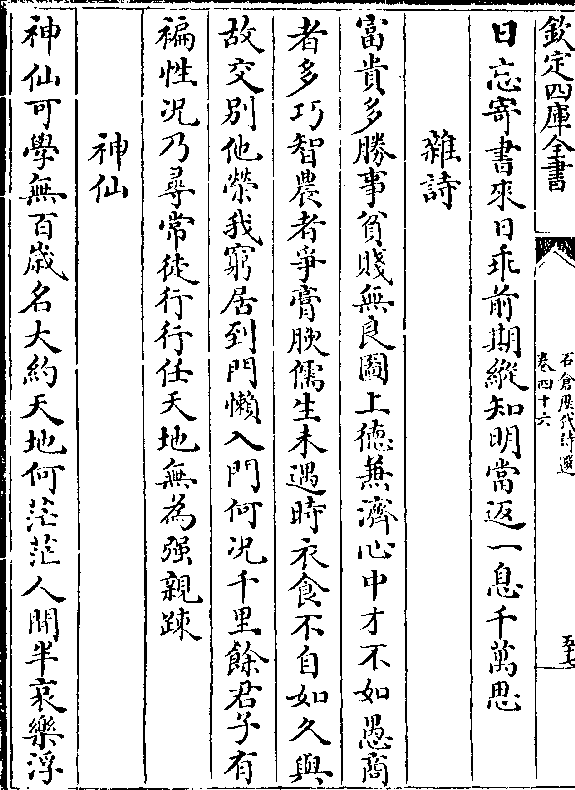 欽定四庫全書
石倉歴代詩選
卷四十六
至七
日忘寄書來日乖前期縱知明當返一息千萬思
雜詩
富貴多勝事貧賤無良圖上德兼濟心中才不如愚商
者多巧智農者爭膏腴儒生未遇時衣食不自如久與
故交别他榮我窮居到門懶入門何况千里餘君子有
褊性况乃尋常徒行行任天地無為强親踈
神仙
神仙可學無百歳名大約天地何茫茫人間半哀樂浮